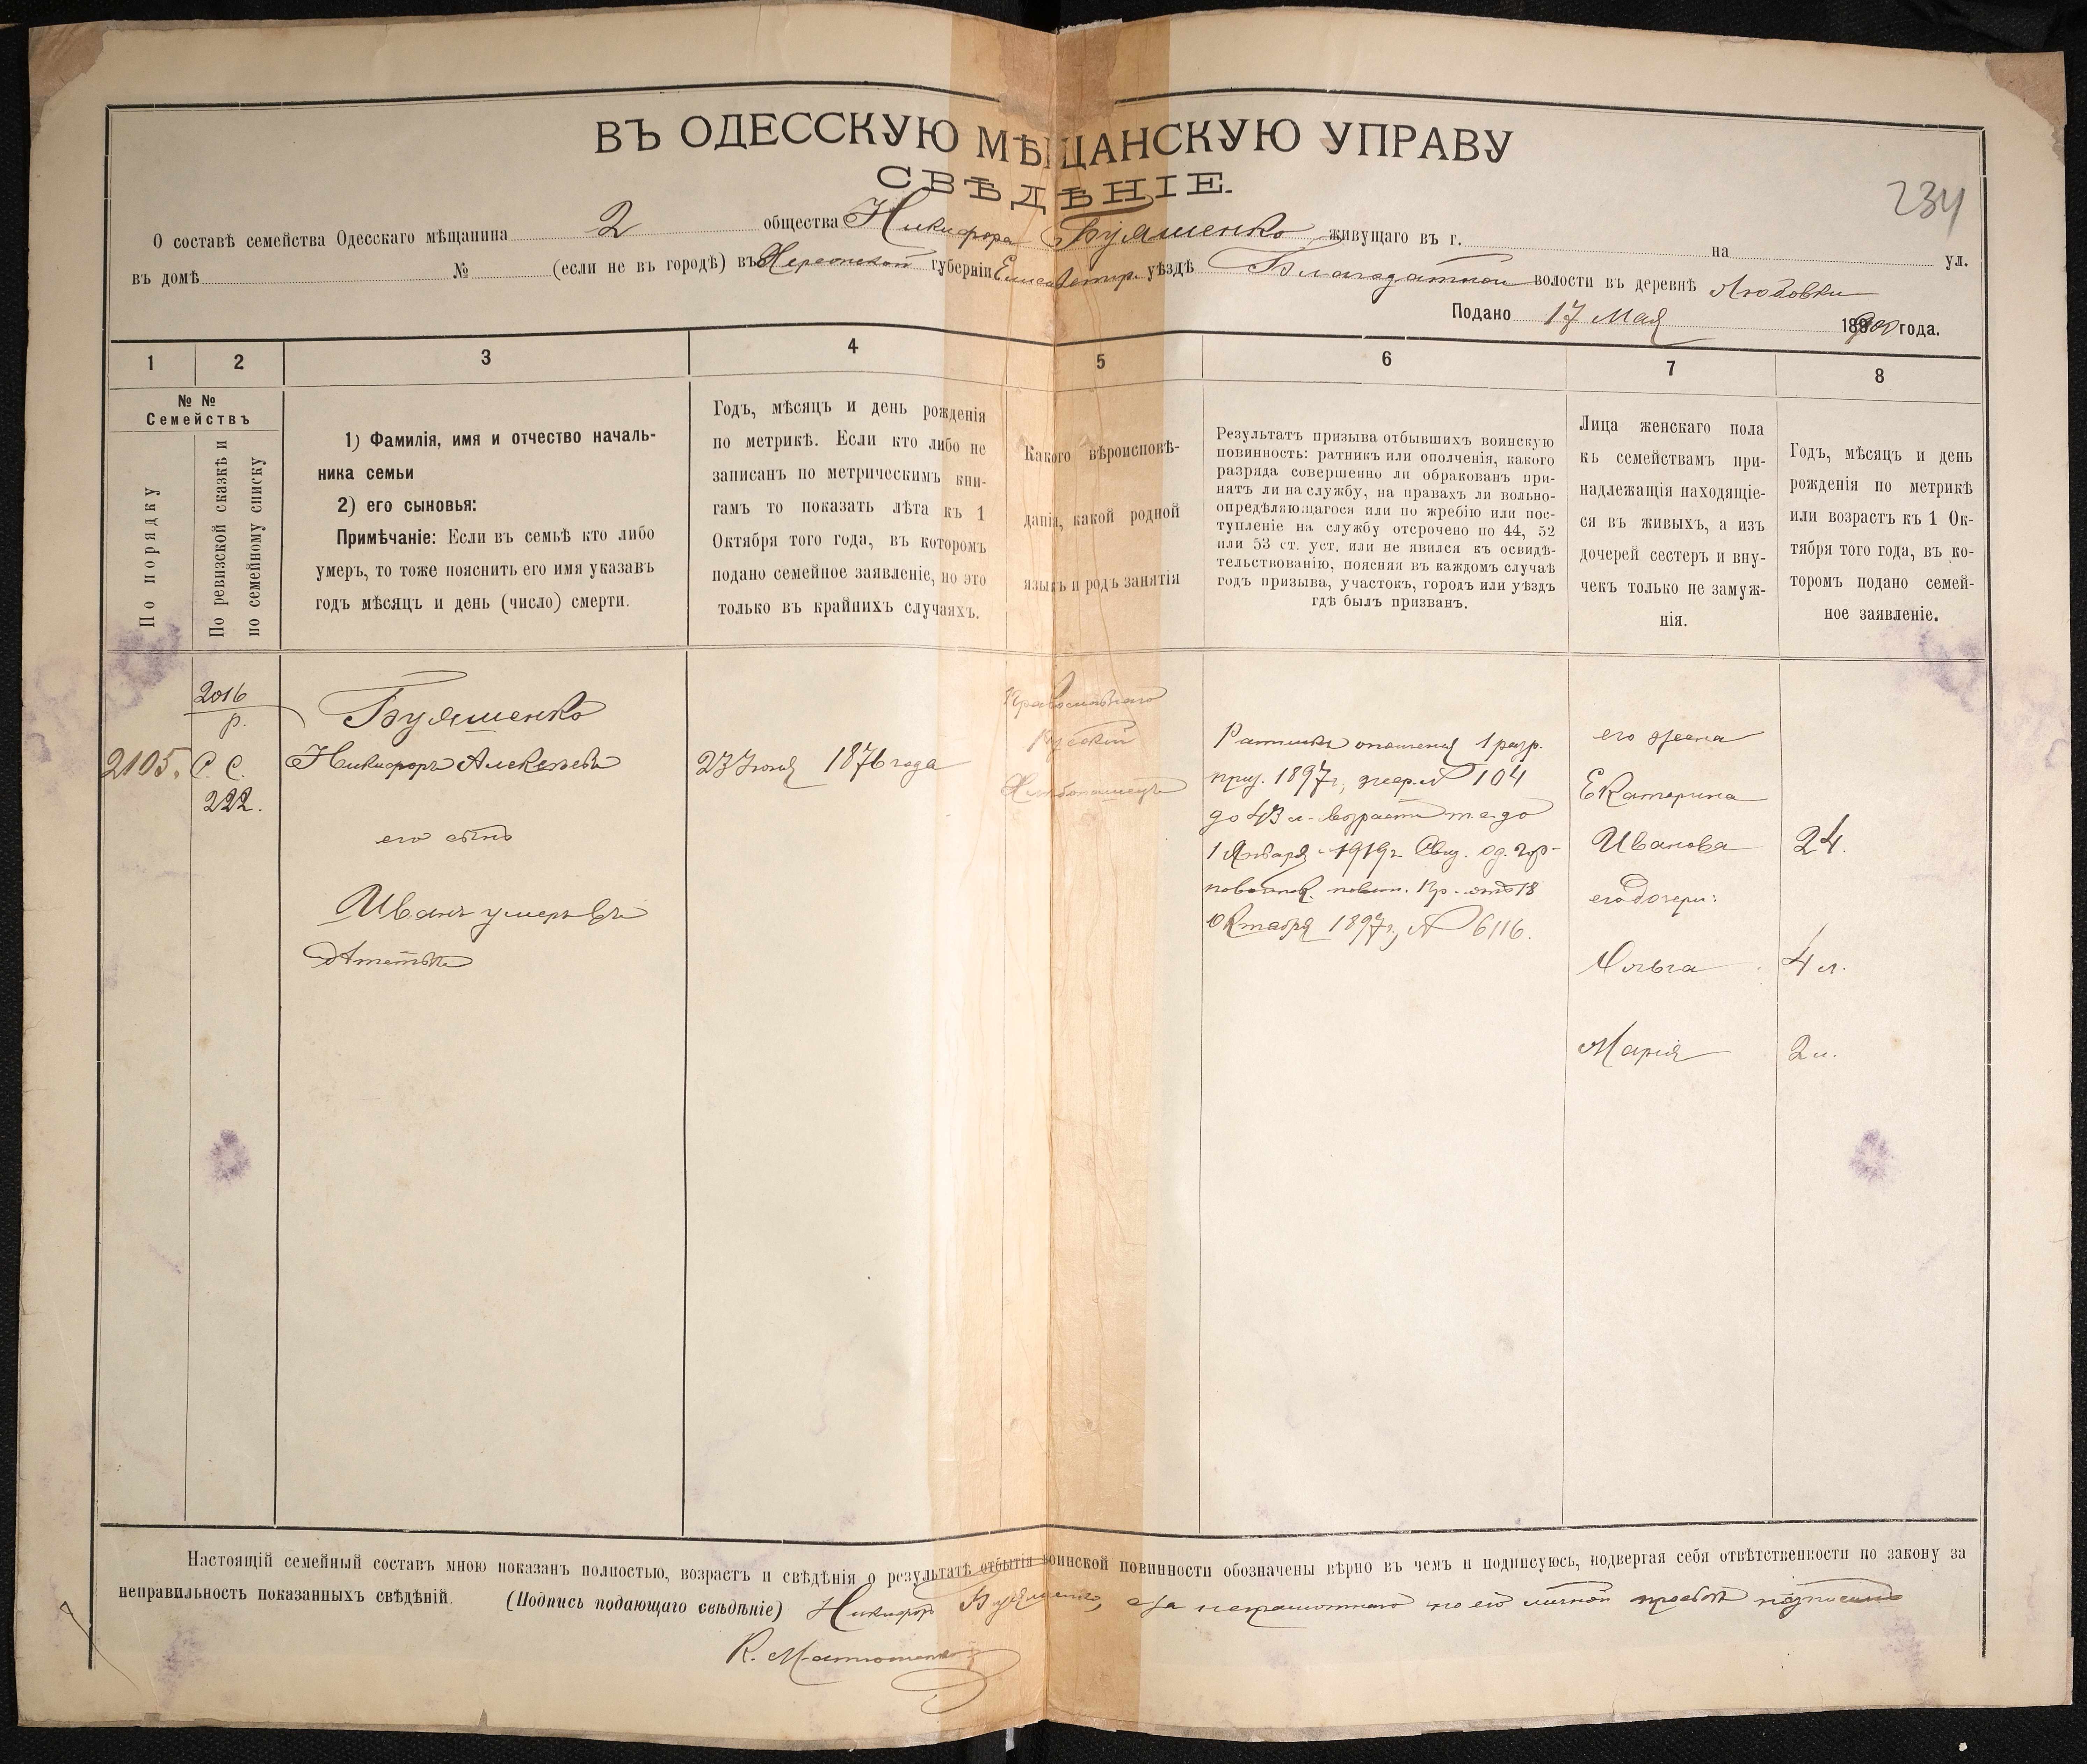 ВЪ ОДЕССКУЮ МѢЩАНСКУЮ УПРАВУ
СВѢДѢНІЕ.
234
О составѣ семейства Одесскаго мѣщанина 2 общества Никифора Буяшенко живущаго въ г. на ул.
въ домѣ № (если не въ городѣ) въ Херсонской губерніи Елисаветгр. уѣздѣ Благодатной волости въ деревнѣ Любовки
Подано 17 Мая 1900 года.
1 2 3 4 5 6 7 8
№ №
Семействъ
По порядку
По ревизской сказкѣ и
по семейному списку
1) Фамилія, имя и отчество началь-
ника семьи
2) его сыновья:
Примѣчаніе: Если въ семьѣ кто либо
умеръ, то тоже пояснить его имя указавъ
годъ мѣсяцъ и день (число) смерти.
Годъ, мѣсяцъ и день рожденія
по метрикѣ. Если кто либо не
записанъ по метрическимъ кни-
гамъ то показать лѣта къ 1
Октября того года, въ которомъ
подано семейное заявленіе, но это
только въ крайнихъ случаяхъ.
Какого вѣроисповѣ-
данія, какой родной
языкъ и родъ занятія
Результатъ призыва отбывшихъ воинскую
повинность: ратникъ или ополченія, какого
разряда совершенно ли обракованъ при-
нятъ ли на службу, на правахъ ли вольно-
опредѣляющагося или по жребію или пос-
тупленіе на службу отсрочено по 44, 52
или 53 ст. уст. или не явился къ освидѣ-
тельствованію, поясняя въ каждомъ случаѣ
годъ призыва, участокъ, городъ или уѣздъ
гдѣ былъ призванъ.
Лица женскаго пола
къ семействамъ при-
надлежащія находящіе-
ся въ живыхъ, а изъ
дочерей сестеръ и вну-
чекъ только не замуж-
нія.
Годъ, мѣсяцъ и день
рожденія по метрикѣ
или возрастъ къ 1 Ок-
тября того года, въ ко-
торомъ подано семей-
ное заявленіе.
2105.
2016
р.
С. С.
222.
Буяшенко
Никифоръ Алексѣевъ
его сынъ
Иванъ умеръ въ
дѣтствѣ
23 Іюня 1876 года
Православнаго
Русскій
Хлѣбопашецъ
Ратникъ ополченія 1 разр.
приз. 1897 г, жереб. № 104
до 43 л. возраста т.е. до
1 Января 1919 г. Свид. Од. гор.
по воинск. повин. Пр. отъ 18
Октября 1897 г, № 6116.
его жена
Екатерина
Иванова
его дочери:
Ольга
Марія
24.
4 л.
2 л.
Настоящій семейный составъ мною показанъ полностью, возрастъ и свѣдѣнія о результатѣ отбытія воинской повинности обозначены вѣрно въ чемъ и подписуюсь, подвергая себя отвѣтственности по закону за
неправильность показанныхъ свѣдѣній. (Подпись подающаго свѣдѣніе) Никифоръ Буяшенко, а за неграмотнаго по его личной просьбѣ подписалъ
К. Матюшенко